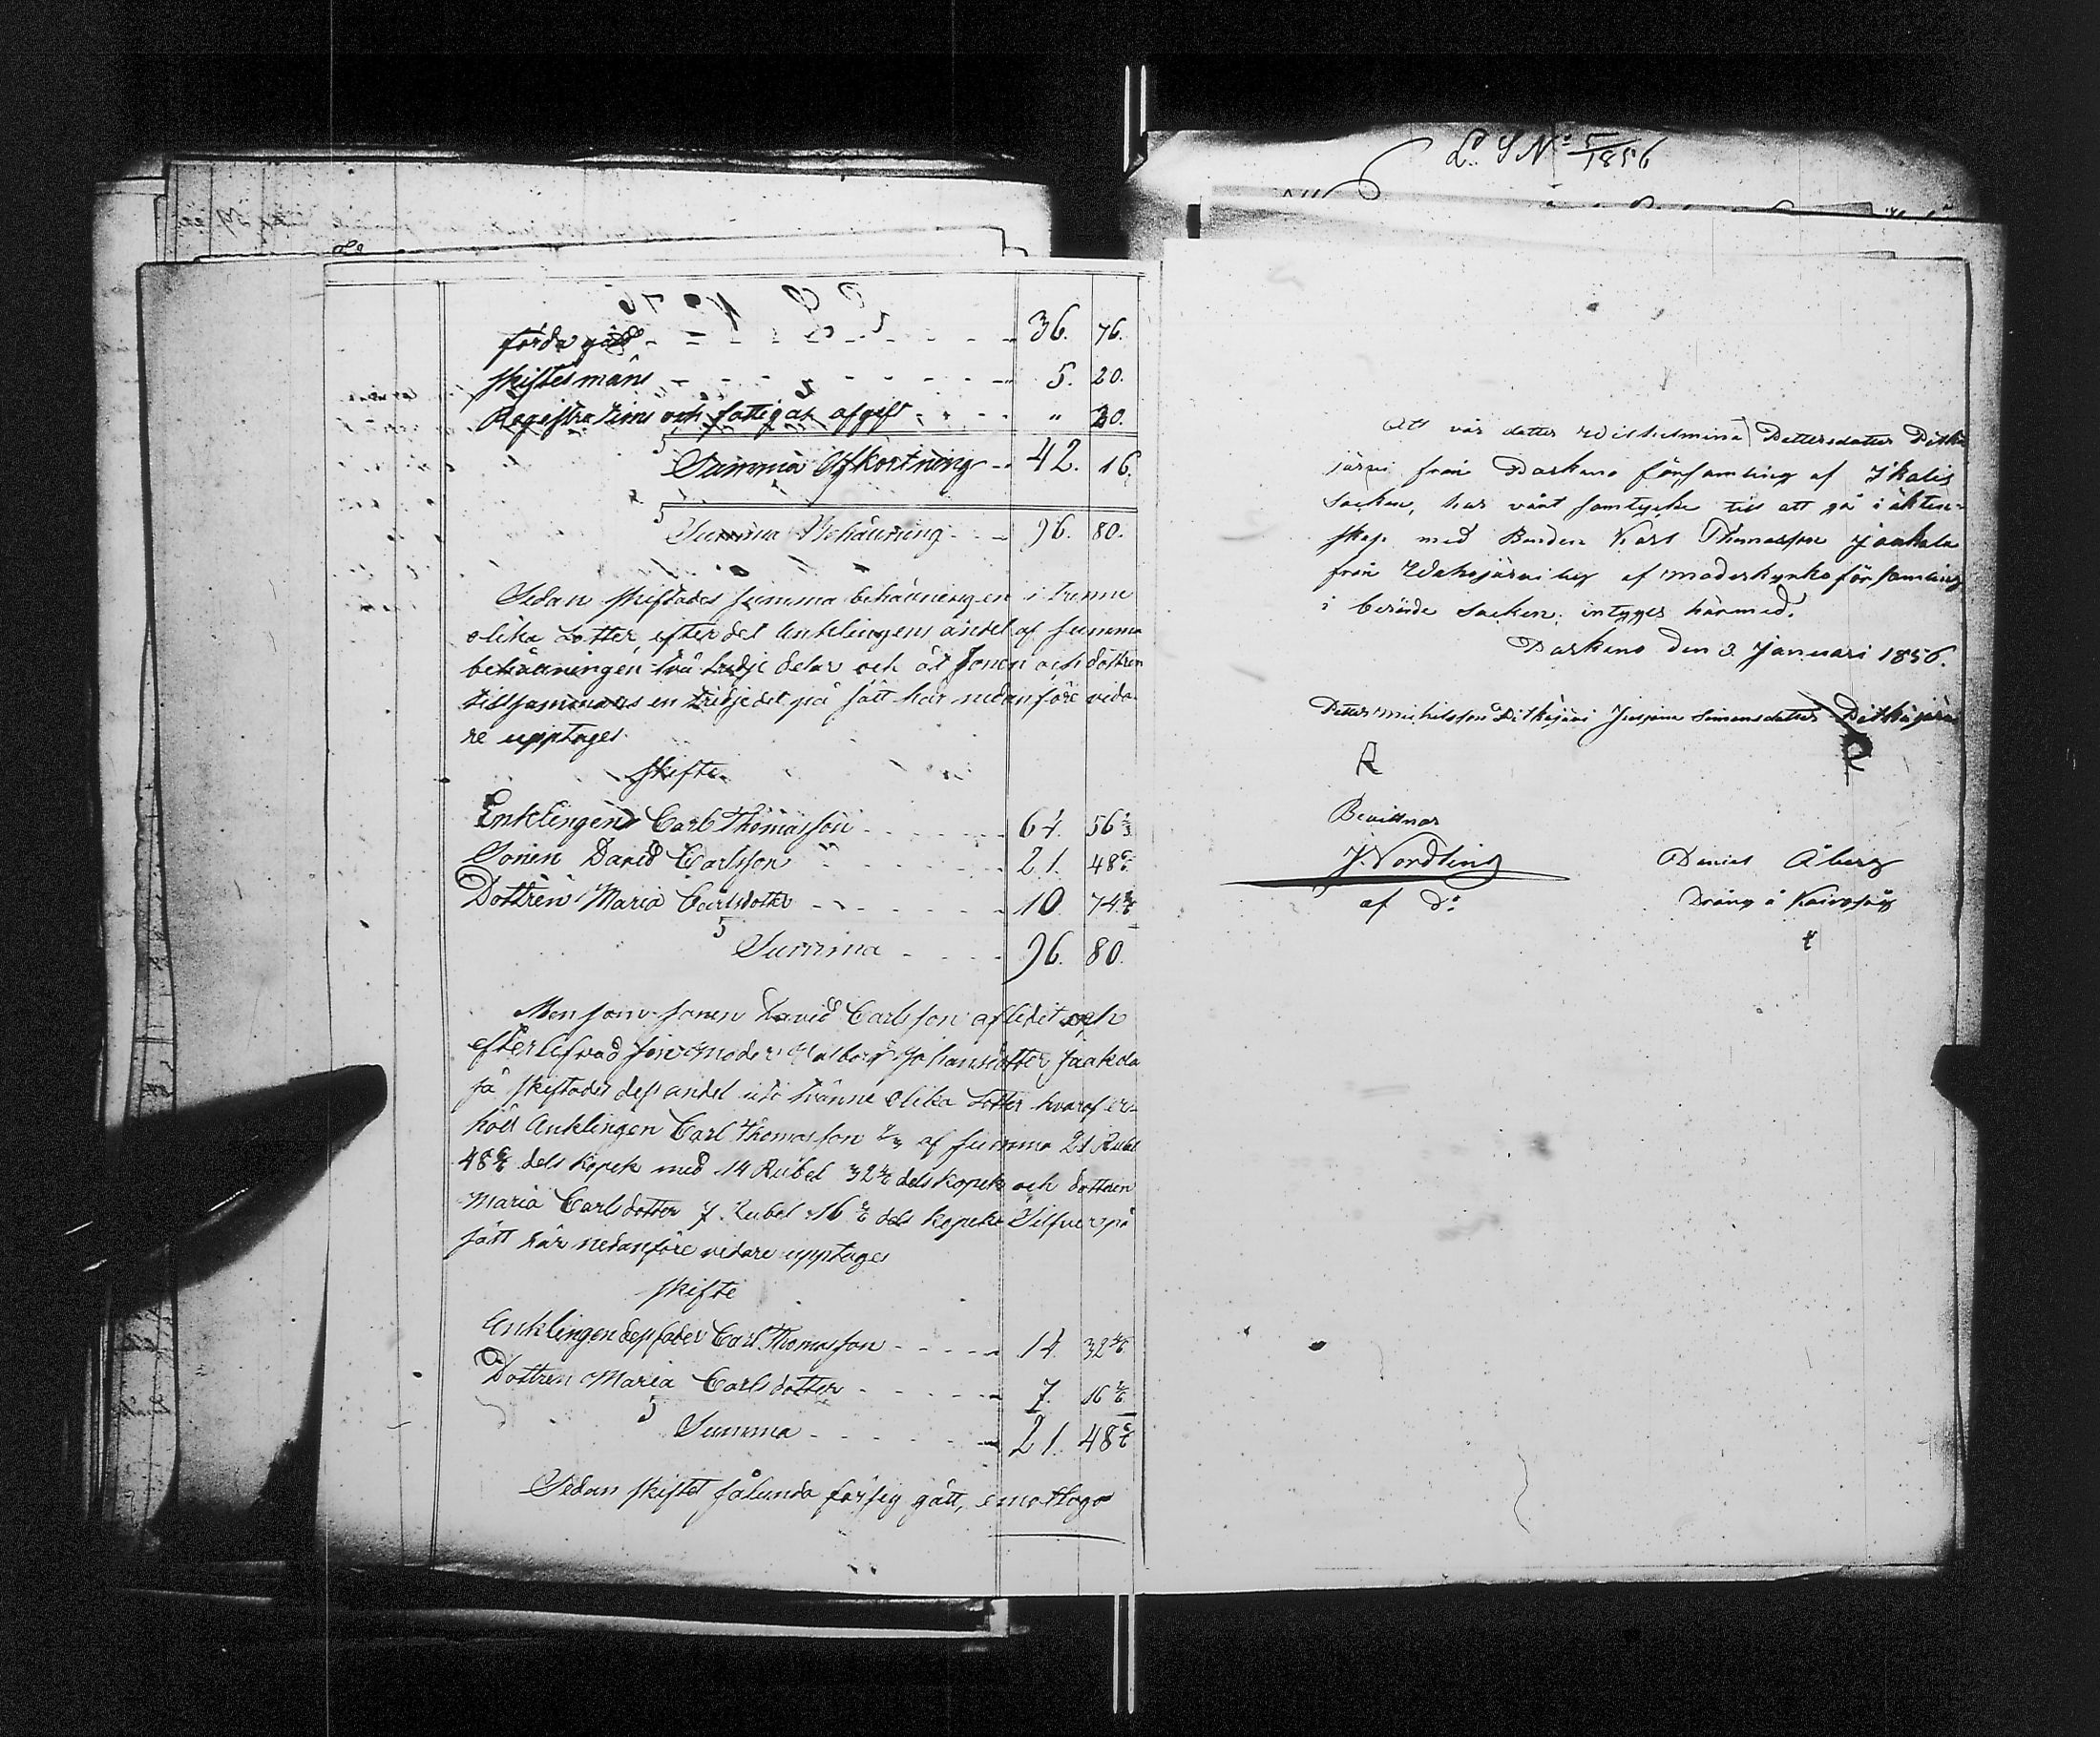 förda gäld - - - - - 36. 76.
skiftesmäns - - - - - 5. 20.
Registrations och fattigas afgift - - - " 20.
Summa Afkortning - - 42. 16.
Summa Behållning - - 96. 80.
Sedan skiftades summa behållningen i trenne
olika Lotter, efter det Enklingens andel af summa
behållningen två tredje delar och åt sonen och dottren
tillsammans en tridjedel på sätt här nedanföre vida-
re upptages.
skifte
Enklingen Carl Thomasson - - - - 64. 56
Sonen David Carlsson - - - - 21. 48
Dottren Maria Carlsdotter - - - - 10. 74
Summa - - - - 96. 80.
Men som sonen David Carlsson aflidit och
efterlefvad sin moder Johansdotter Jaakola
så skiftades dess andel uti tvänne olika Lotter hvaraf er-
höll Anklingen Carl Thomasson 2/3 af summa 21 Rubel
48 dels kopek med 14 Rubel 32 4/6 dels kopek och dottren
Maria Carlsdotter 7 Rubel 16 2/6 dels kopek Silfver på
sätt här nedanföre vidare upptages
skifte
Anklingen dess fader Carl Thomasson - - - - 14. 32 4/6
Dottren Maria Carlsdotter - - - - 7. 16 2/6
Summa - - - - 21. 48
Sedan skiftet sålunda försig gått, emottogo
L. S N:o 5/1856
Att vår dotter Wilhelmina Pettersdotter Pitkä
järvi från Parkano församling af Ikalis
Socken, har vårt samtycke till att gå i äkten-
skap med Bonden Karl Thomasson Jaakola
från by af moderkyrko församling
i berörde socken; intyges härmed.
Parkano den 3 Januari 1856.
Petter Michelsson Pitkäjärvi Simonsdotter Pitkäjärvi
Bevittnar
J. Nordling Daniel Åberg
af D:o Dräng å